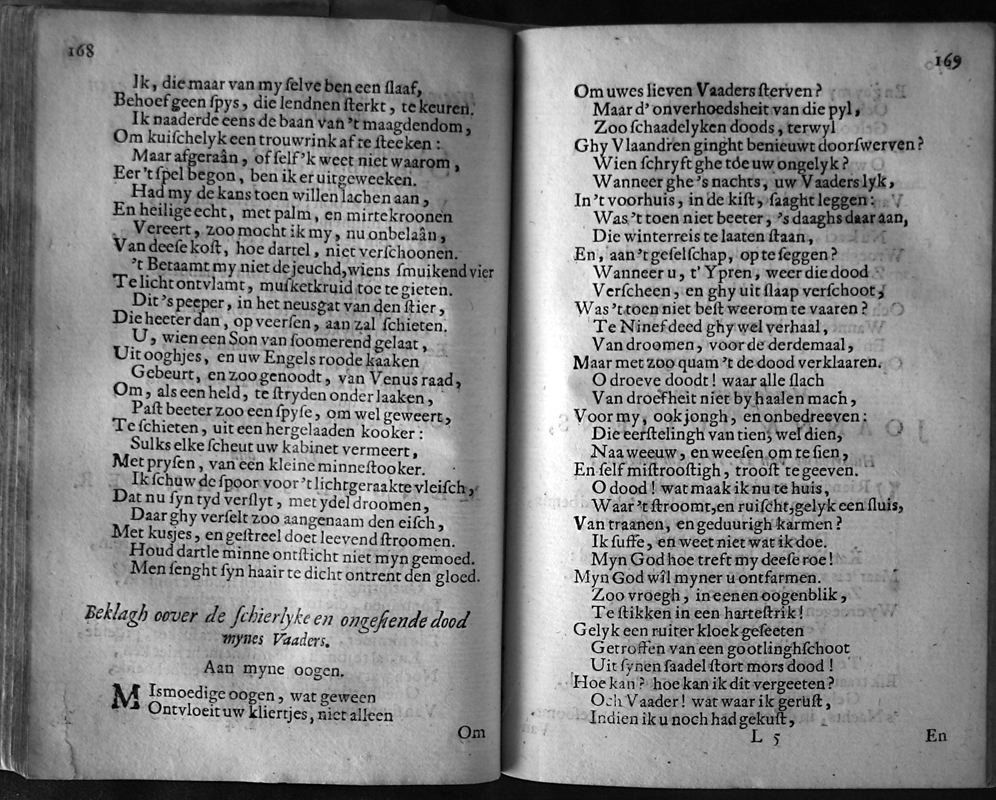 168
Ik, die maar van my ſelve ben een ſlaaf,
Behoef geen ſpys, die lendnen ſterkt, te keuren.
Ik naaderde eens de baan van 't maagdendom,
Om kuiſchelyk een trouwrink af te ſteeken:
Maar afgeraân, of ſelf 'k weet niet waarom,
Eer 't ſpel begon, ben ik er uitgeweeken.
Had my de kans toen willen lachen aan,
En heilige echt, met palm, en mirtekroonen
Vereert, zoo mocht ik my, nu onbelaân,
Van deeſe koſt, hoe dartel, niet verſchoonen.
't Betaamt my niet de jeuchd, wiens ſmuikend vier
Te licht ontvlamt, muſketkruid toe te gieten.
Dit 's peeper, in het neusgat van den ſtier,
Die heeter dan, op veerſen, aan zal ſchieten.
U, wien een Son van ſoomerend gelaat,
Uit ooghjes, en uw Engels roode kaaken
Gebeurt, en zoo genoodt, van Venus raad,
Om, als een held, te ſtryden onder laaken,
Paſt beeter zoo een ſpyſe, om wel geweert,
Te ſchieten, uit een hergelaaden kooker:
Sulks elke ſcheut uw kabinet vermeert,
Met pryſen, van een kleine minneſtooker.
Ik ſchuw de ſpoor voor 't lichtgeraakte vleiſch,
Dat nu ſyn tyd verſlyt, met ydel droomen,
Daar ghy verſelt zoo aangenaam den eiſch,
Met kusjes, en geſtreel doet leevend ſtroomen.
Houd dartle minne ontſticht niet myn gemoed.
Men ſenght ſyn haair te dicht ontrent den gloed.
Beklagh oover de ſchierlyke en ongeſiende dood
mynes Vaaders.
Aan myne oogen.
MIsmoedige oogen, wat geween
Ontvloeit uw kliertjes, niet alleen
Om
169
Om uwes lieven Vaaders ſterven?
Maar d' onverhoedsheit van die pyl,
Zoo ſchaadelyken doods, terwyl
Ghy Vlaandren ginght benieuwt doorſwerven?
Wien ſchryft ghe toe uw ongelyk?
Wanneer ghe 's nachts, uw Vaaders lyk,
In 't voorhuis, in de kiſt, ſaaght leggen:
Was 't toen niet beeter, 's daaghs daar aan,
Die winterreis te laaten ſtaan,
En, aan 't geſelſchap, op te ſeggen?
Wanneer u, t' Ypren, weer die dood
Verſcheen, en ghy uit ſlaap verſchoot,
Was 't toen niet beſt weerom te vaaren?
Te Ninef deed ghy wel verhaal,
Van droomen, voor de derdemaal,
Maar met zoo quam 't de dood verklaaren.
O droeve doodt! waar alle ſlach
Van droefheit niet by haalen mach,
Voor my, ook jongh, en onbedreeven:
Die eerſtelingh van tien, wel dien,
Naa weeuw, en weeſen om te ſien,
En ſelf miſtrooſtigh, trooſt te geeven.
O dood! wat maak ik nu te huis,
Waar 't ſtroomt, en ruiſcht, gelyk een ſluis,
Van traanen, en geduurigh karmen?
Ik ſuffe, en weet niet wat ik doe.
Myn God hoe treft my deeſe roe!
Myn God wil myner u ontfarmen.
Zoo vroegh, in eenen oogenblik,
Te ſtikken in een harteſtrik!
Gelyk een ruiter kloek geſeeten
Getroffen van een gootlinghſchoot
Uit ſynen ſaadel ſtort mors dood!
Hoe kan? hoe kan ik dit vergeeten?
Och Vaader! wat waar ik geruſt,
Indien ik u noch had gekuſt,
L 5
En